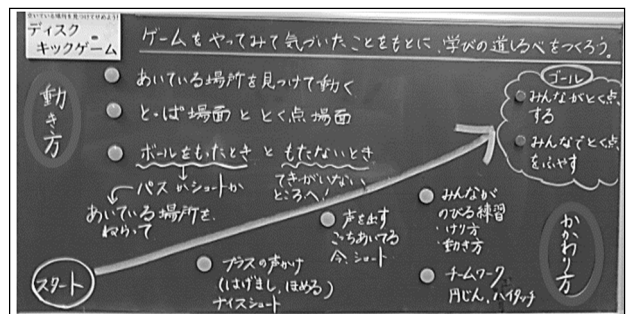 空いている場所を見つけてせめよう!
ディスク
キックゲーム
ゲームをやってみて気づいたことをもとに、学びの道しるべをつくろう。
動き方
あいている場所を見つけて動く
とっぱ場面ととく点場面
ボールをもったときともたないとき
パスかシュートか
あいている場所を
ねらって
てきがいない
ところへ!
ゴール
みんながとく点
する
みんなでとく点
をふやす
スタート
プラスの声かけ
(はげまし、ほめる)
ナイスシュート
声を出す
こっちあいてる
今、シュート
みんなが
のびる練習
・けり方
・動き方
チームワーク
円じん、ハイタッチ
かかわり方